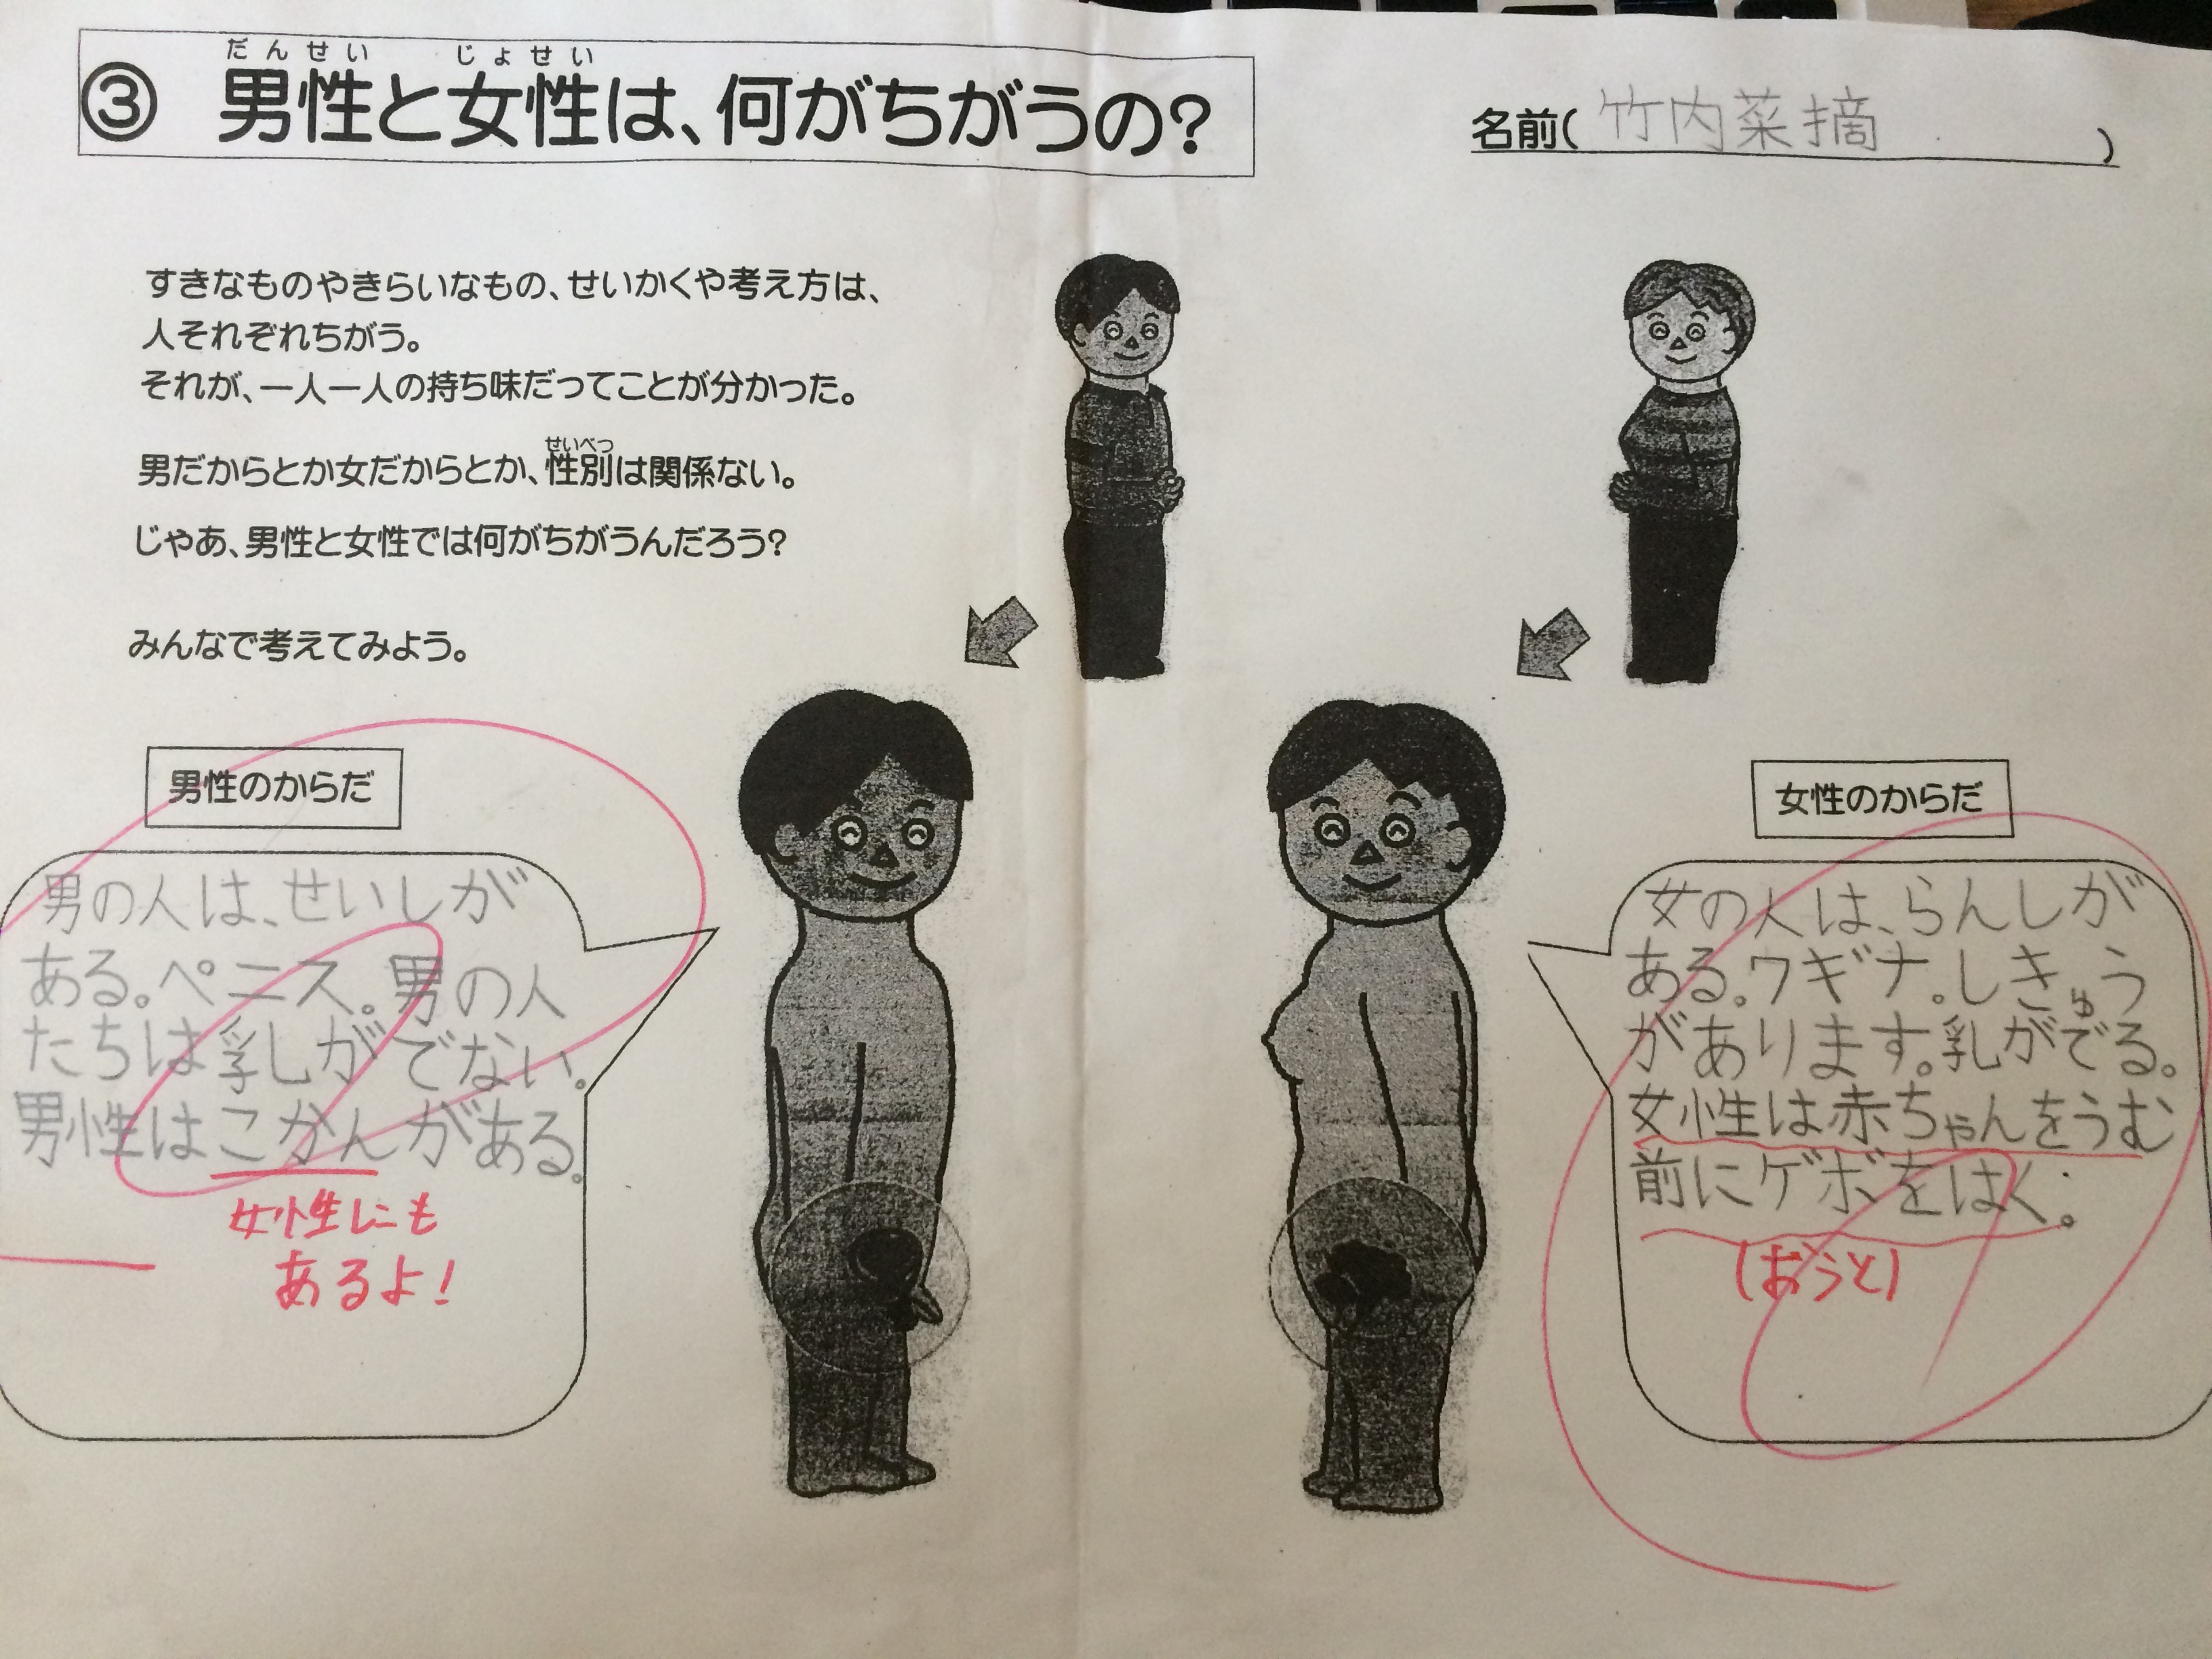 だんせい じょせい
③ 男性と女性は、何がちがうの?
名前( 竹内菜摘 )
すきなものやきらいなもの、せいかくや考え方は、
人それぞれちがう。
それが、一人一人の持ち味だってことが分かった。
せいべつ
男だからとか女だからとか、性別は関係ない。
じゃあ、男性と女性では何がちがうんだろう?
みんなで考えてみよう。
男性のからだ
男の人は、せいしが
ある。ペニス。男の人
たちは乳しがでない。
男性はこかんがある。
女性にも
あるよ!
女性のからだ
女の人は、らんしが
ある。ワギナ。しきゅう
があります。乳がでる。
女性は赤ちゃんをうむ
前にゲボをはく。
(おうと)